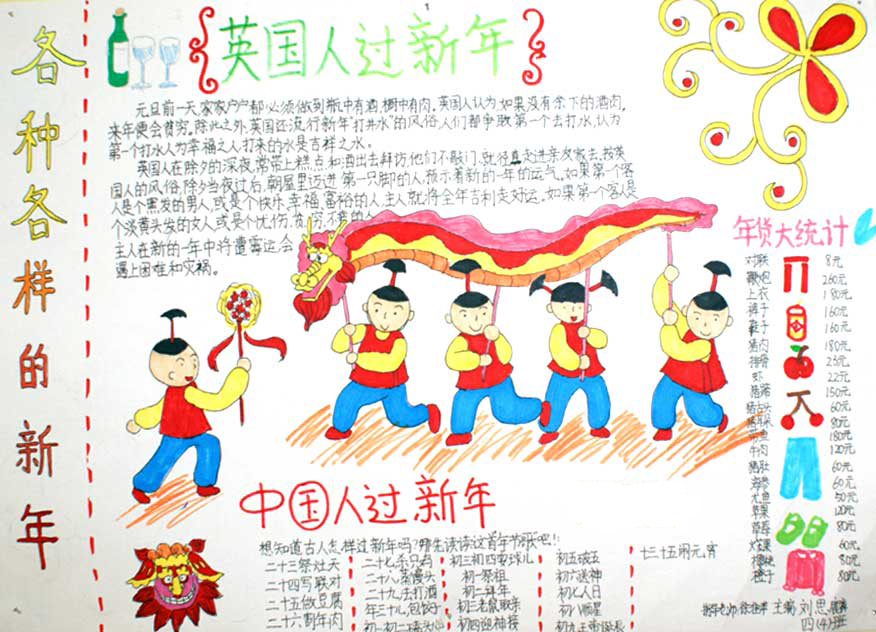 各种各样的新年
英国人过新年
元旦前一天,家家户户都必须做到瓶中有酒,橱中有肉。英国人认为,如果没有余下的酒肉,
来年便会贫穷。除此之外,英国还流行新年“打井水”的风俗,人们都争取第一个去打水,认为
第一个打水人为幸福之人,打来的水是吉祥之水。
英国人在除夕的深夜,常带上糕点和酒出去拜访,他们不敲门,就径直走进亲友家去,按英
国人的风俗,除夕当夜过后,朝屋里迈进第一只脚的人,预示着新的一年的运气。如果第一个客
人是个黑发的男人,或是个快乐、幸福、富裕的人,主人就将全年吉利走好运。如果第一个客人是
个淡黄头发的女人,或是个忧伤、贫穷、不幸的人
主人在新的一年中将遭霉运会
遇上困难和灾祸。
年货大统计
对联 8元
鞭炮 260元
上衣 180元
裤子 160元
鞋子 160元
猪肉 180元
排骨 23元
虾 22元
150元
60元
80元
180元
牛肉 120元
猪肚 60元
60元
尤鱼 50元
苹果 120元
草莓 80元
60元
樱桃 80元
橙子 80元
中国人过新年
想知道古人怎样过新年吗?那先读读这首年节歌吧!!
二十三祭灶天
二十四写联对
二十五做豆腐
二十六割年肉
二十七杀只鸡
二十八蒸馒头
二十九去打酒
年三十儿包饺
初一初二磕头
初三初四耍球儿
初一祭祖
初二拜年
初三老鼠取亲
初四迎神接
初五破五
初六送神
初七人日
初八顺星
初九玉帝诞辰
七三十五闹元宵
主编 刘思
四(4)班